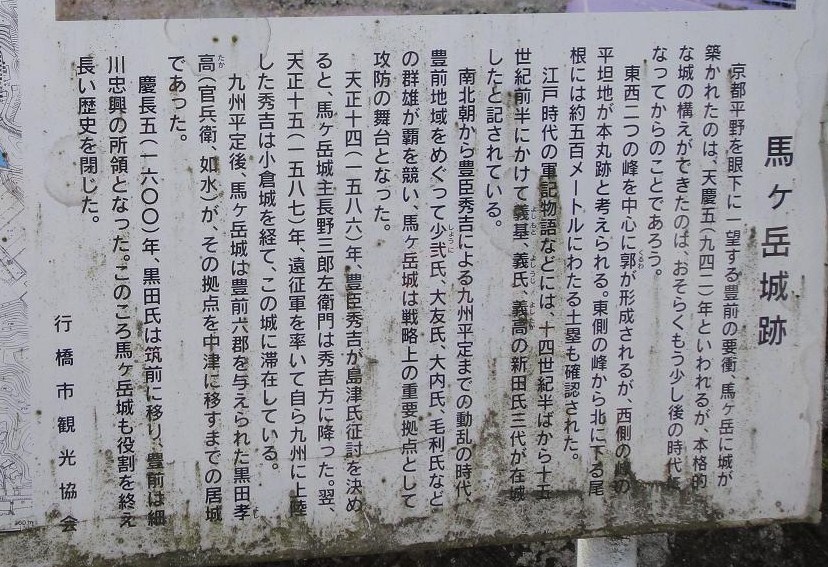 馬ヶ岳城跡
京都平野を眼下に一望する豊前の要衝、馬ヶ岳に城が
築かれたのは、天慶五(九四二)年といわれるが、本格的
な城の構えができたのは、おそらくもう少し後の時代に
なってからのことであろう。
東西二つの峰を中心に郭が形成されるが、西側の峰の
くるわ
平坦地が本丸跡と考えられる。東側の峰から北に下る尾
根には約五百メートルにわたる土塁も確認された。
江戸時代の軍記物語などには、十四世紀半ばから十五
世紀前半にかけて義基、義氏、義高の新田氏三代が在城
よしもと よしうじ よしたか
したと記されている。
南北朝から豊臣秀吉による九州平定までの動乱の時代、
豊前地域をめぐって少弐氏、大友氏、大内氏、毛利氏など
しょうに
の群雄が覇を競い、馬ヶ岳城は戦略上の重要拠点として
攻防の舞台となった。
天正十四(一五八六)年、豊臣秀吉が島津氏征討を決め
ると、馬ヶ岳城主長野三郎左衛門は秀吉方に降った。翌、
天正十五(一五八七)年、遠征軍を率いて自ら九州に上陸
した秀吉は小倉城を経て、この城に滞在している。
九州平定後、馬ヶ岳城は豊前六郡を与えられた黒田孝
高(官兵衛、如水)が、その拠点を中津に移すまでの居城
たか
であった。
慶長五(一六〇〇)年、黒田氏は筑前に移り、豊前は細
川忠興の所領となった。このころ馬ヶ岳城も役割を終え
長い歴史を閉じた。
行橋市観光協会